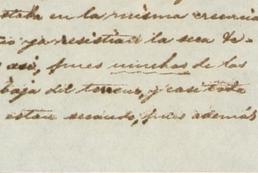 estaba en la misma creencia
registrar la sea de
asi, pues muchos de los
baja del terreno, y casi toda
estan secando, pues además